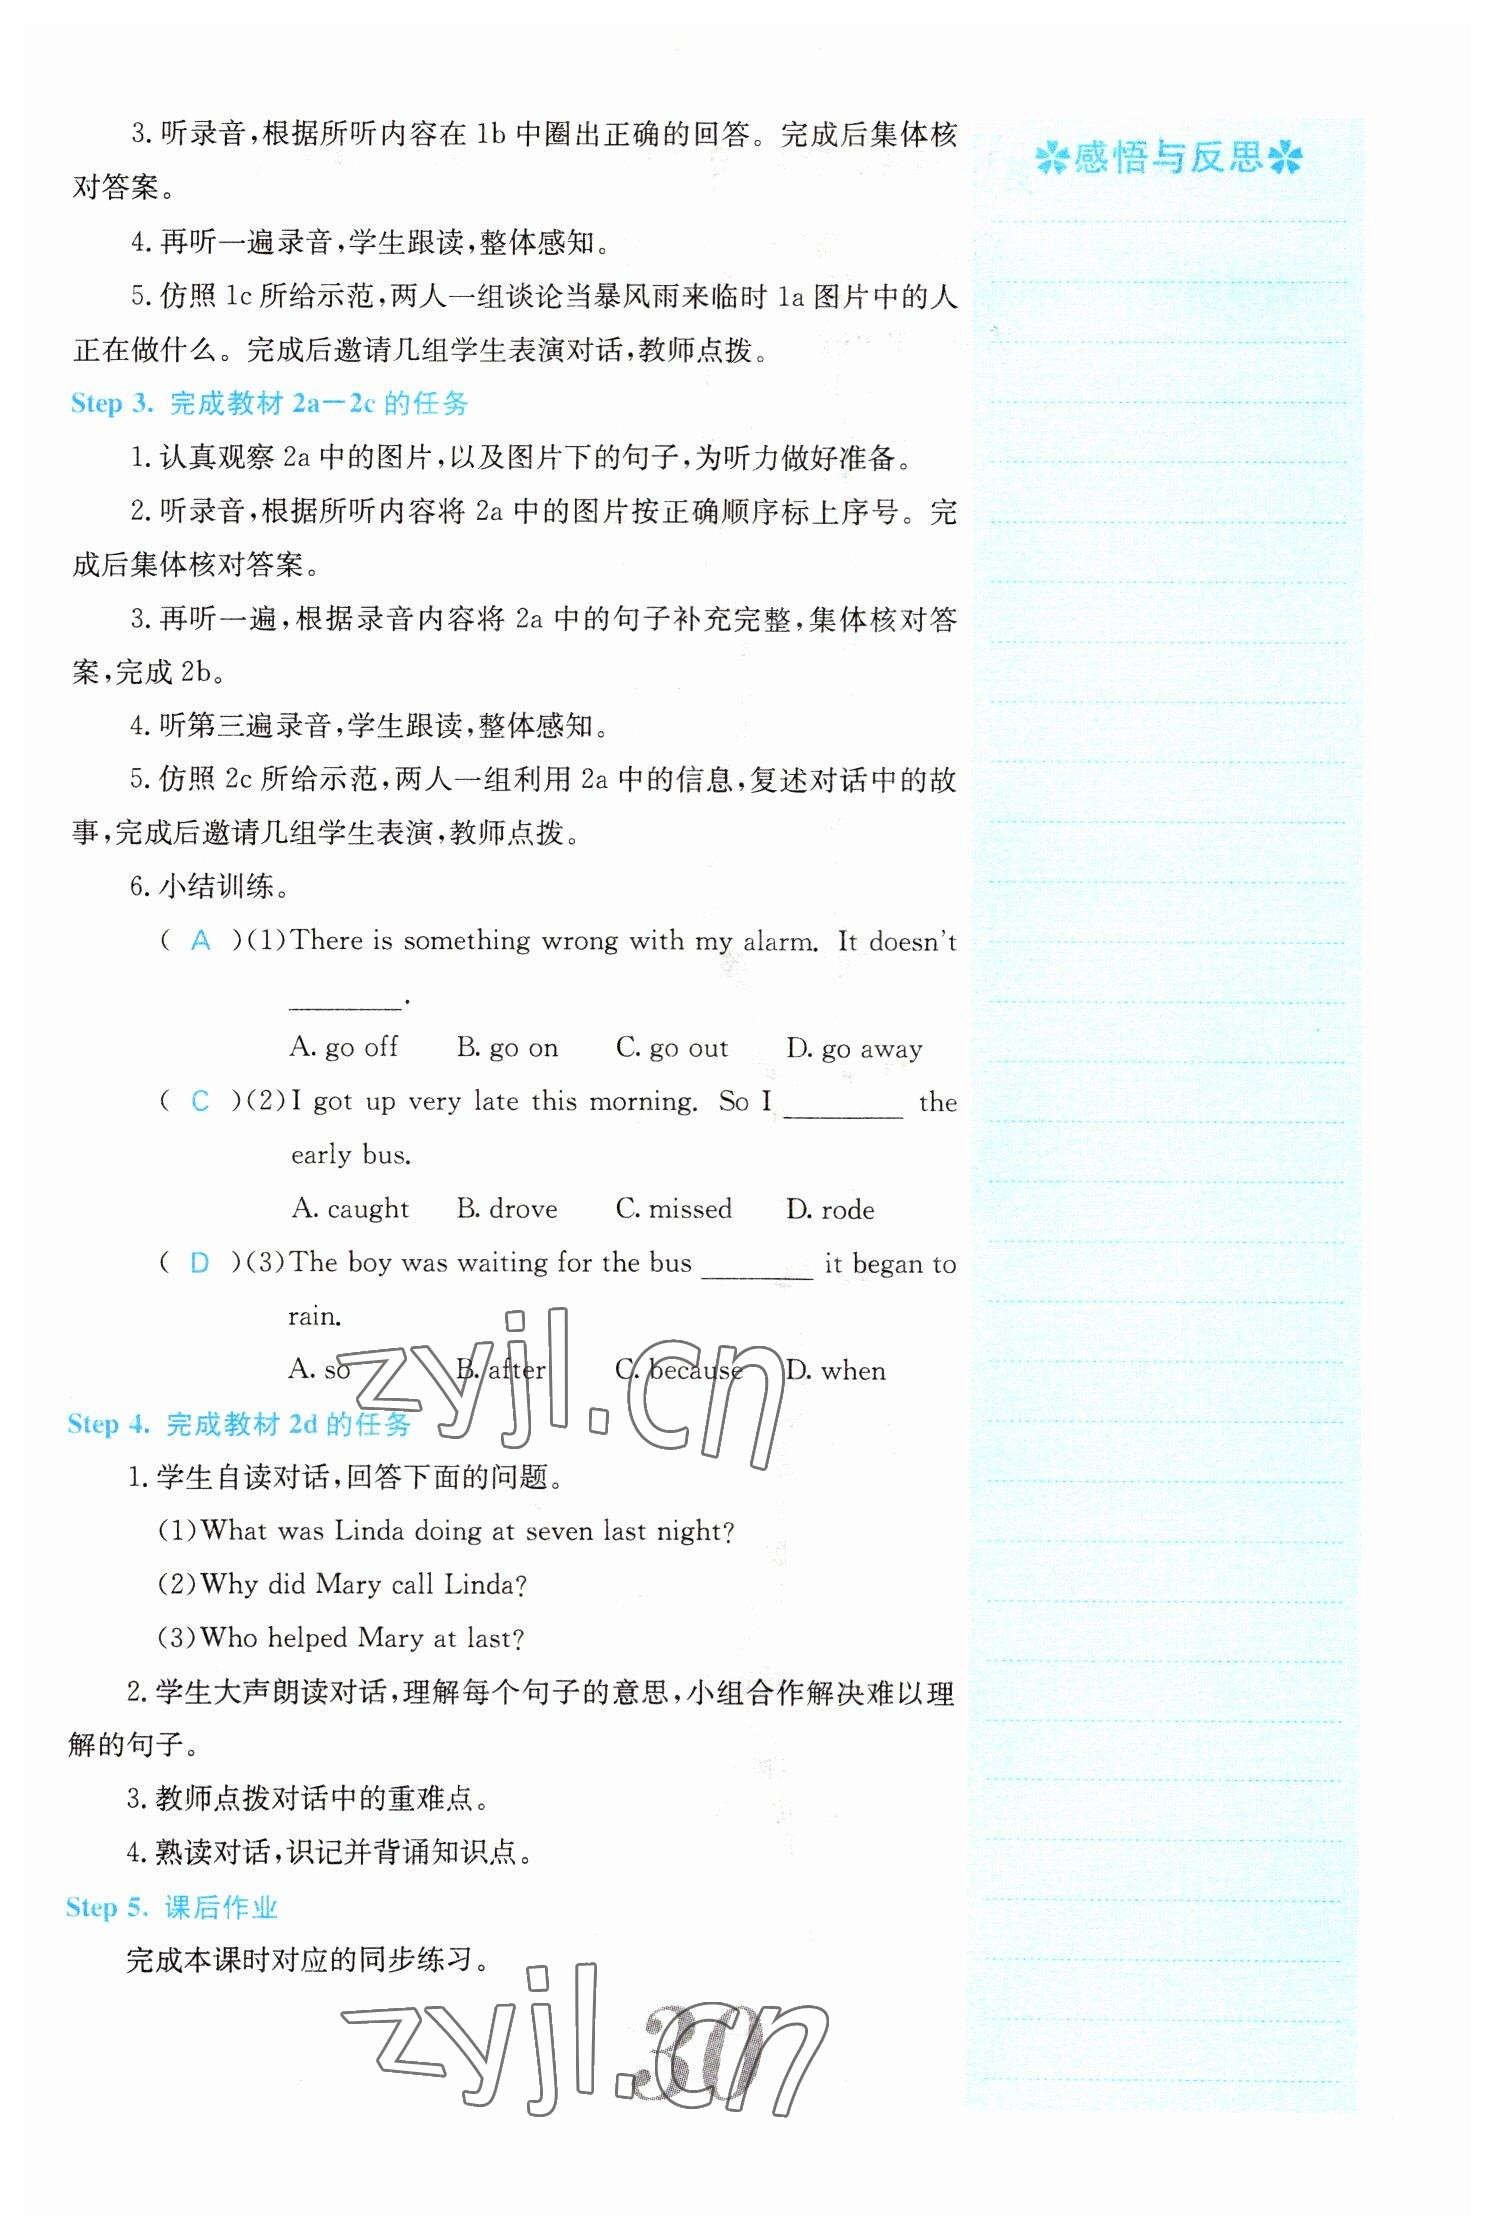 3. 听录音,根据所听内容在 1b 中圈出正确的回答。完成后集体核
对答案。
4. 再听一遍录音,学生跟读,整体感知。
5. 仿照 1c 所给示范,两人一组谈论当暴风雨来临时 1a 图片中的人
正在做什么。完成后邀请几组学生表演对话,教师点拨。
Step 3. 完成教材 2a—2c 的任务
1. 认真观察 2a 中的图片,以及图片下的句子,为听力做好准备。
2. 听录音,根据所听内容将 2a 中的图片按正确顺序标上序号。完
成后集体核对答案。
3. 再听一遍,根据录音内容将 2a 中的句子补充完整,集体核对答
案,完成 2b。
4. 听第三遍录音,学生跟读,整体感知。
5. 仿照 2c 所给示范,两人一组利用 2a 中的信息,复述对话中的故
事,完成后邀请几组学生表演,教师点拨。
6. 小结训练。
( A )(1)There is something wrong with my alarm. It doesn't
________.
A. go off B. go on C. go out D. go away
( C )(2)I got up very late this morning. So I ________ the
early bus.
A. caught B. drove C. missed D. rode
( D )(3)The boy was waiting for the bus ________ it began to
rain.
A. so B. after C. because D. when
Step 4. 完成教材 2d 的任务
1. 学生自读对话,回答下面的问题。
(1)What was Linda doing at seven last night?
(2)Why did Mary call Linda?
(3)Who helped Mary at last?
2. 学生大声朗读对话,理解每个句子的意思,小组合作解决难以理
解的句子。
3. 教师点拨对话中的重难点。
4. 熟读对话,识记并背诵知识点。
Step 5. 课后作业
完成本课时对应的同步练习。
感悟与反思
zyjl.cn
zyjl.cn
30